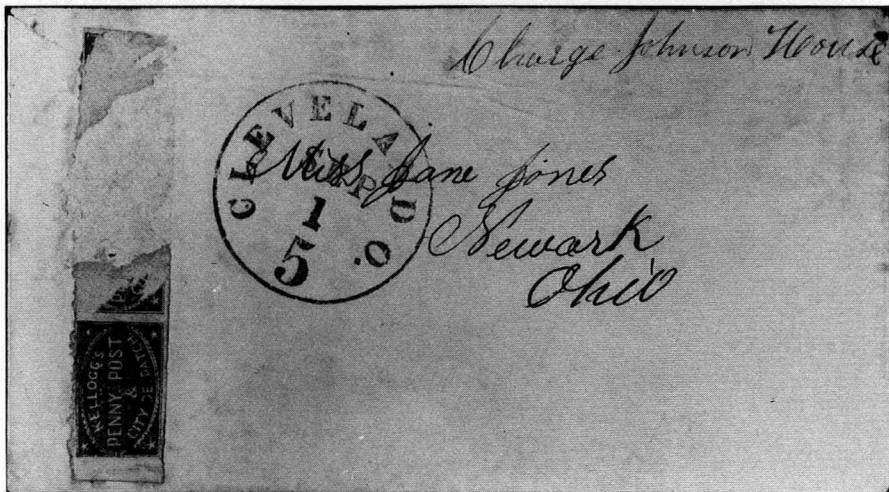 Charge Johnson House
CLEVELAND O.
1
5
Miss Jane Jones
Newark
Ohio
KELLOGG'S
PENNY POST
&
CITY DE PATCH